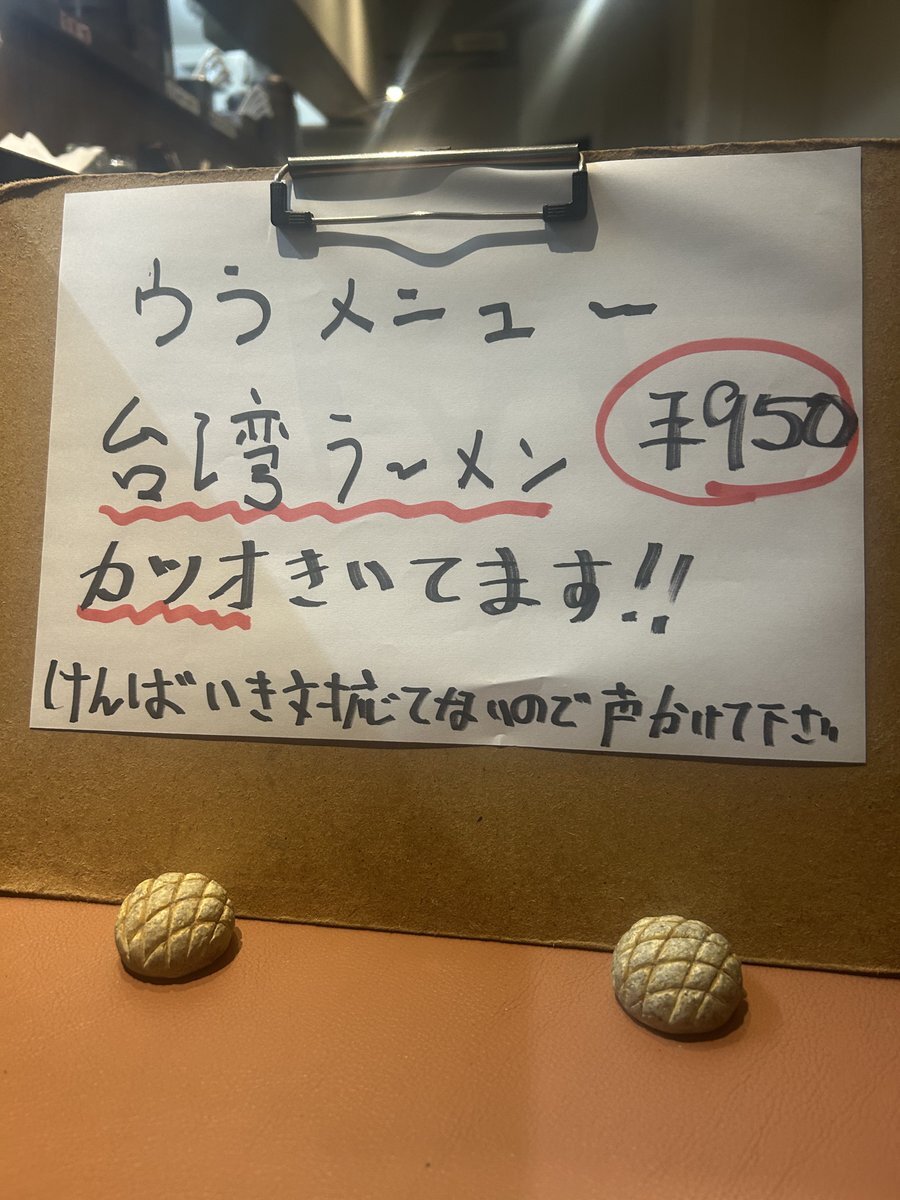 ウラメニュー
台湾ラーメン ¥950
カツオきいてます!!
けんばいき対応してないので声かけて下さい